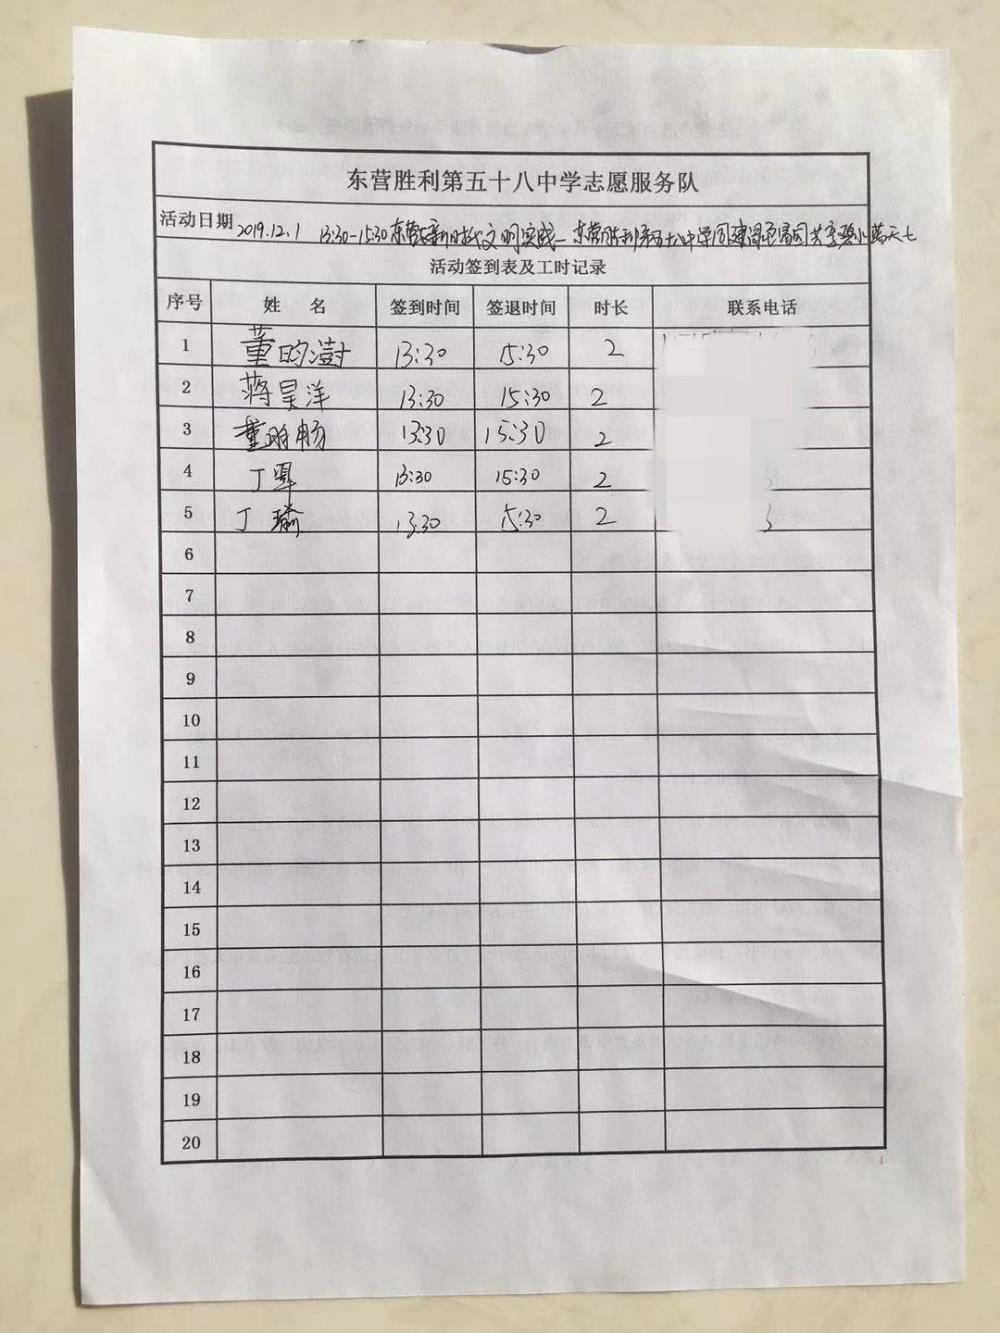 东营胜利第五十八中学志愿服务队
活动日期 2019.12.1 13:30-15:30 东营区新时代文明实践—东营胜利第五十八中学同建绿色家园共享碧水蓝天七
活动签到表及工时记录
序号 姓 名 签到时间 签退时间 时长 联系电话
1 董昀澍 13:30 15:30 2
2 蒋昊洋 13:30 15:30 2
3 董 畅 13:30 15:30 2
4 丁 13:30 15:30 2
5 丁 13:30 15:30 2
6
7
8
9
10
11
12
13
14
15
16
17
18
19
20
1